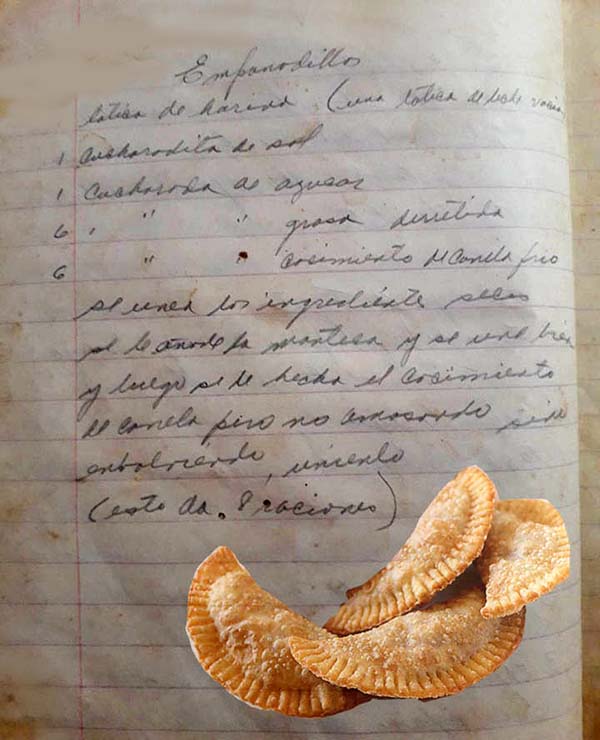 Empanadillas
latica de harina (una latica de leche vacia)
1 cucharadita de sal
1 cucharada de azucar
6 " " grasa derretida
6 " " cosimiento de canela frio
se unen los ingrediente secos
se le añade la manteca y se une bien
y luego se le hecha el cosimiento
de canela pero no amasando sino
enbolviendo, uniendo
(esto da. 8 raciones)